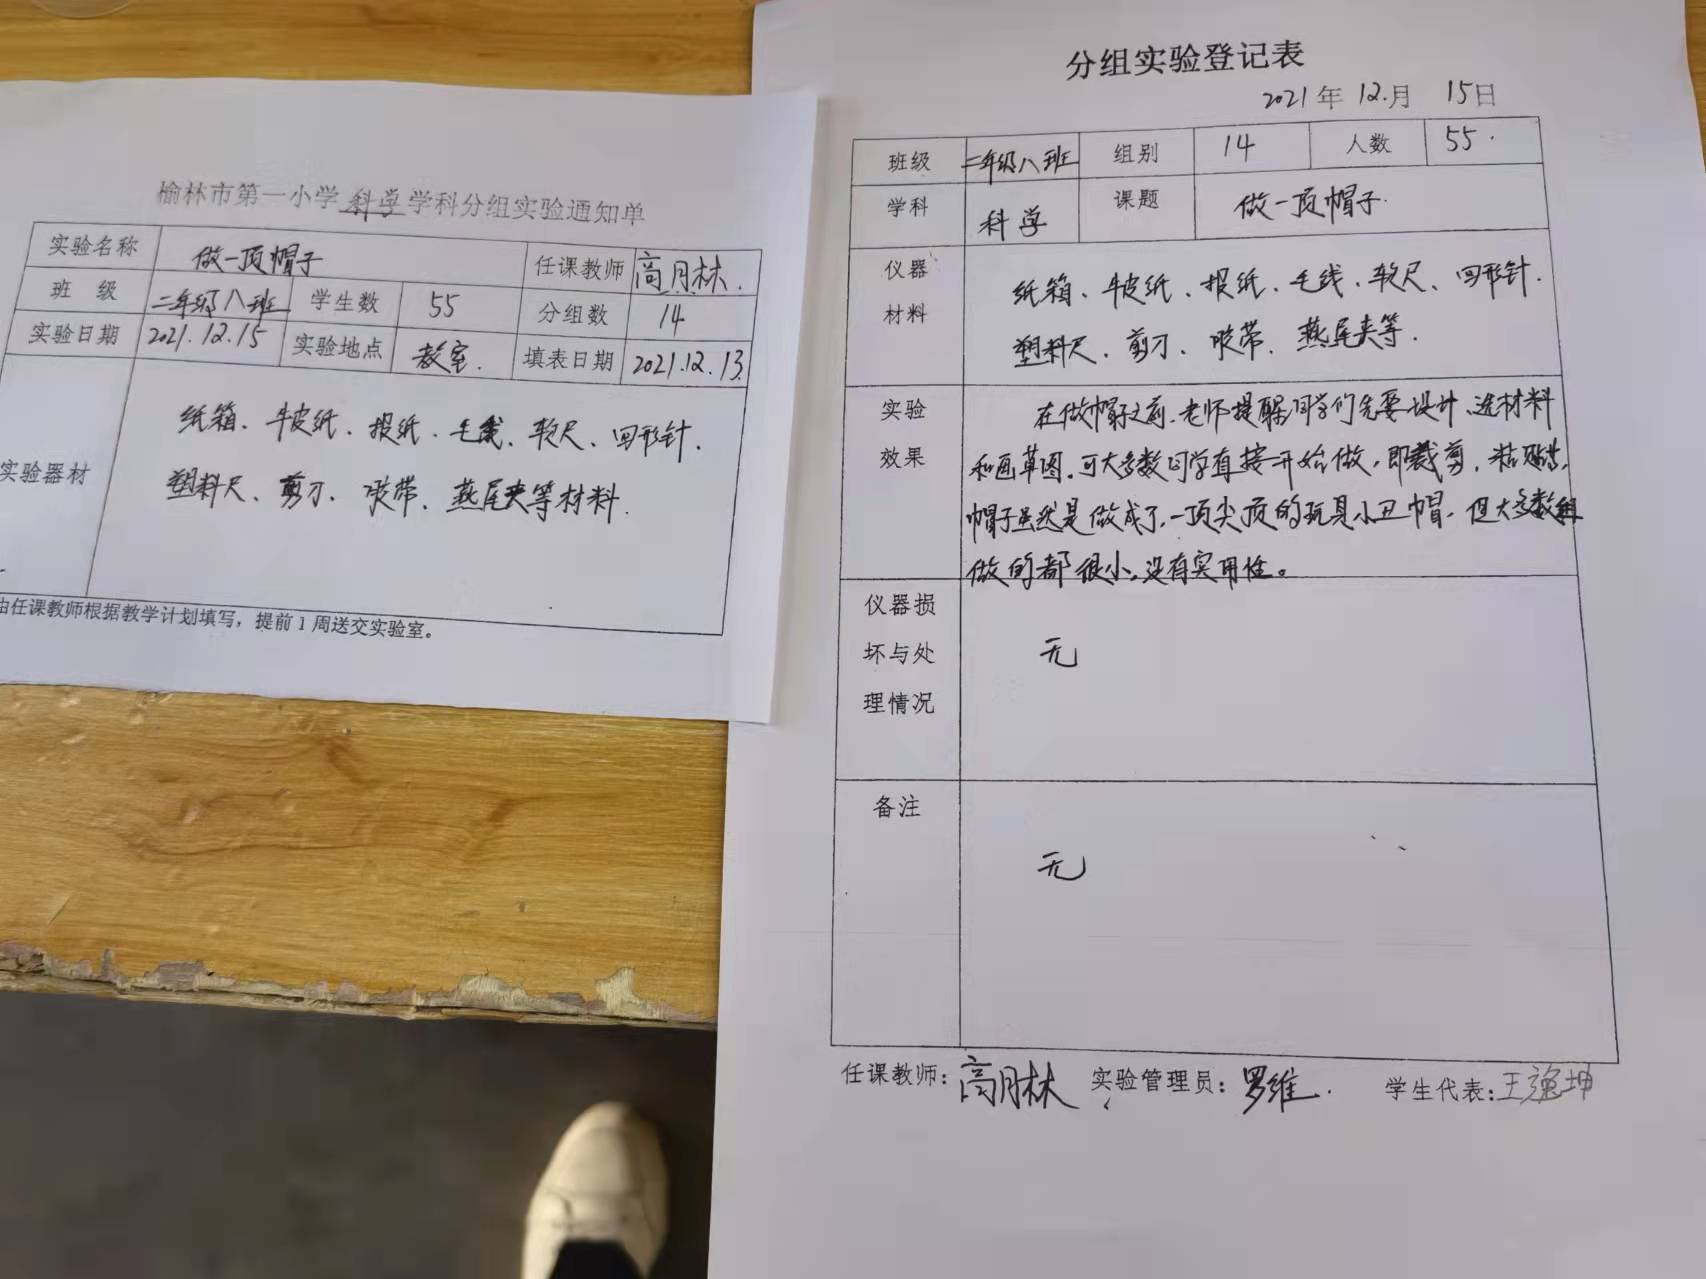 榆林市第一小学科学学科分组实验通知单
实验名称 做一顶帽子 任课教师 高月林.
班 级 二年级八班 学生数 55 分组数 14
实验日期 2021.12.15 实验地点 教室. 填表日期 2021.12.13.
实验器材
纸箱、牛皮纸、报纸、毛线、软尺、回形针.
塑料尺、剪刀、胶带、燕尾夹等材料.
由任课教师根据教学计划填写，提前1周送交实验室。
分组实验登记表
2021年 12.月 15日
班级 二年级八班 组别 14 人数 55.
学科 科学 课题 做一顶帽子.
仪器
材料
纸箱、牛皮纸、报纸、毛线、软尺、回形针.
塑料尺、剪刀、胶带、燕尾夹等.
实验
效果
在做帽子之前,老师提醒同学们先要设计、选材料
和画草图,可大多数同学直接开始做,即裁剪、粘贴,
帽子虽然是做成了,一顶尖顶的玩具小丑帽,但大多数组
做的都很小,没有实用性。
仪器损
坏与处
理情况
无
备注
无
任课教师：高月林 实验管理员：罗维. 学生代表：